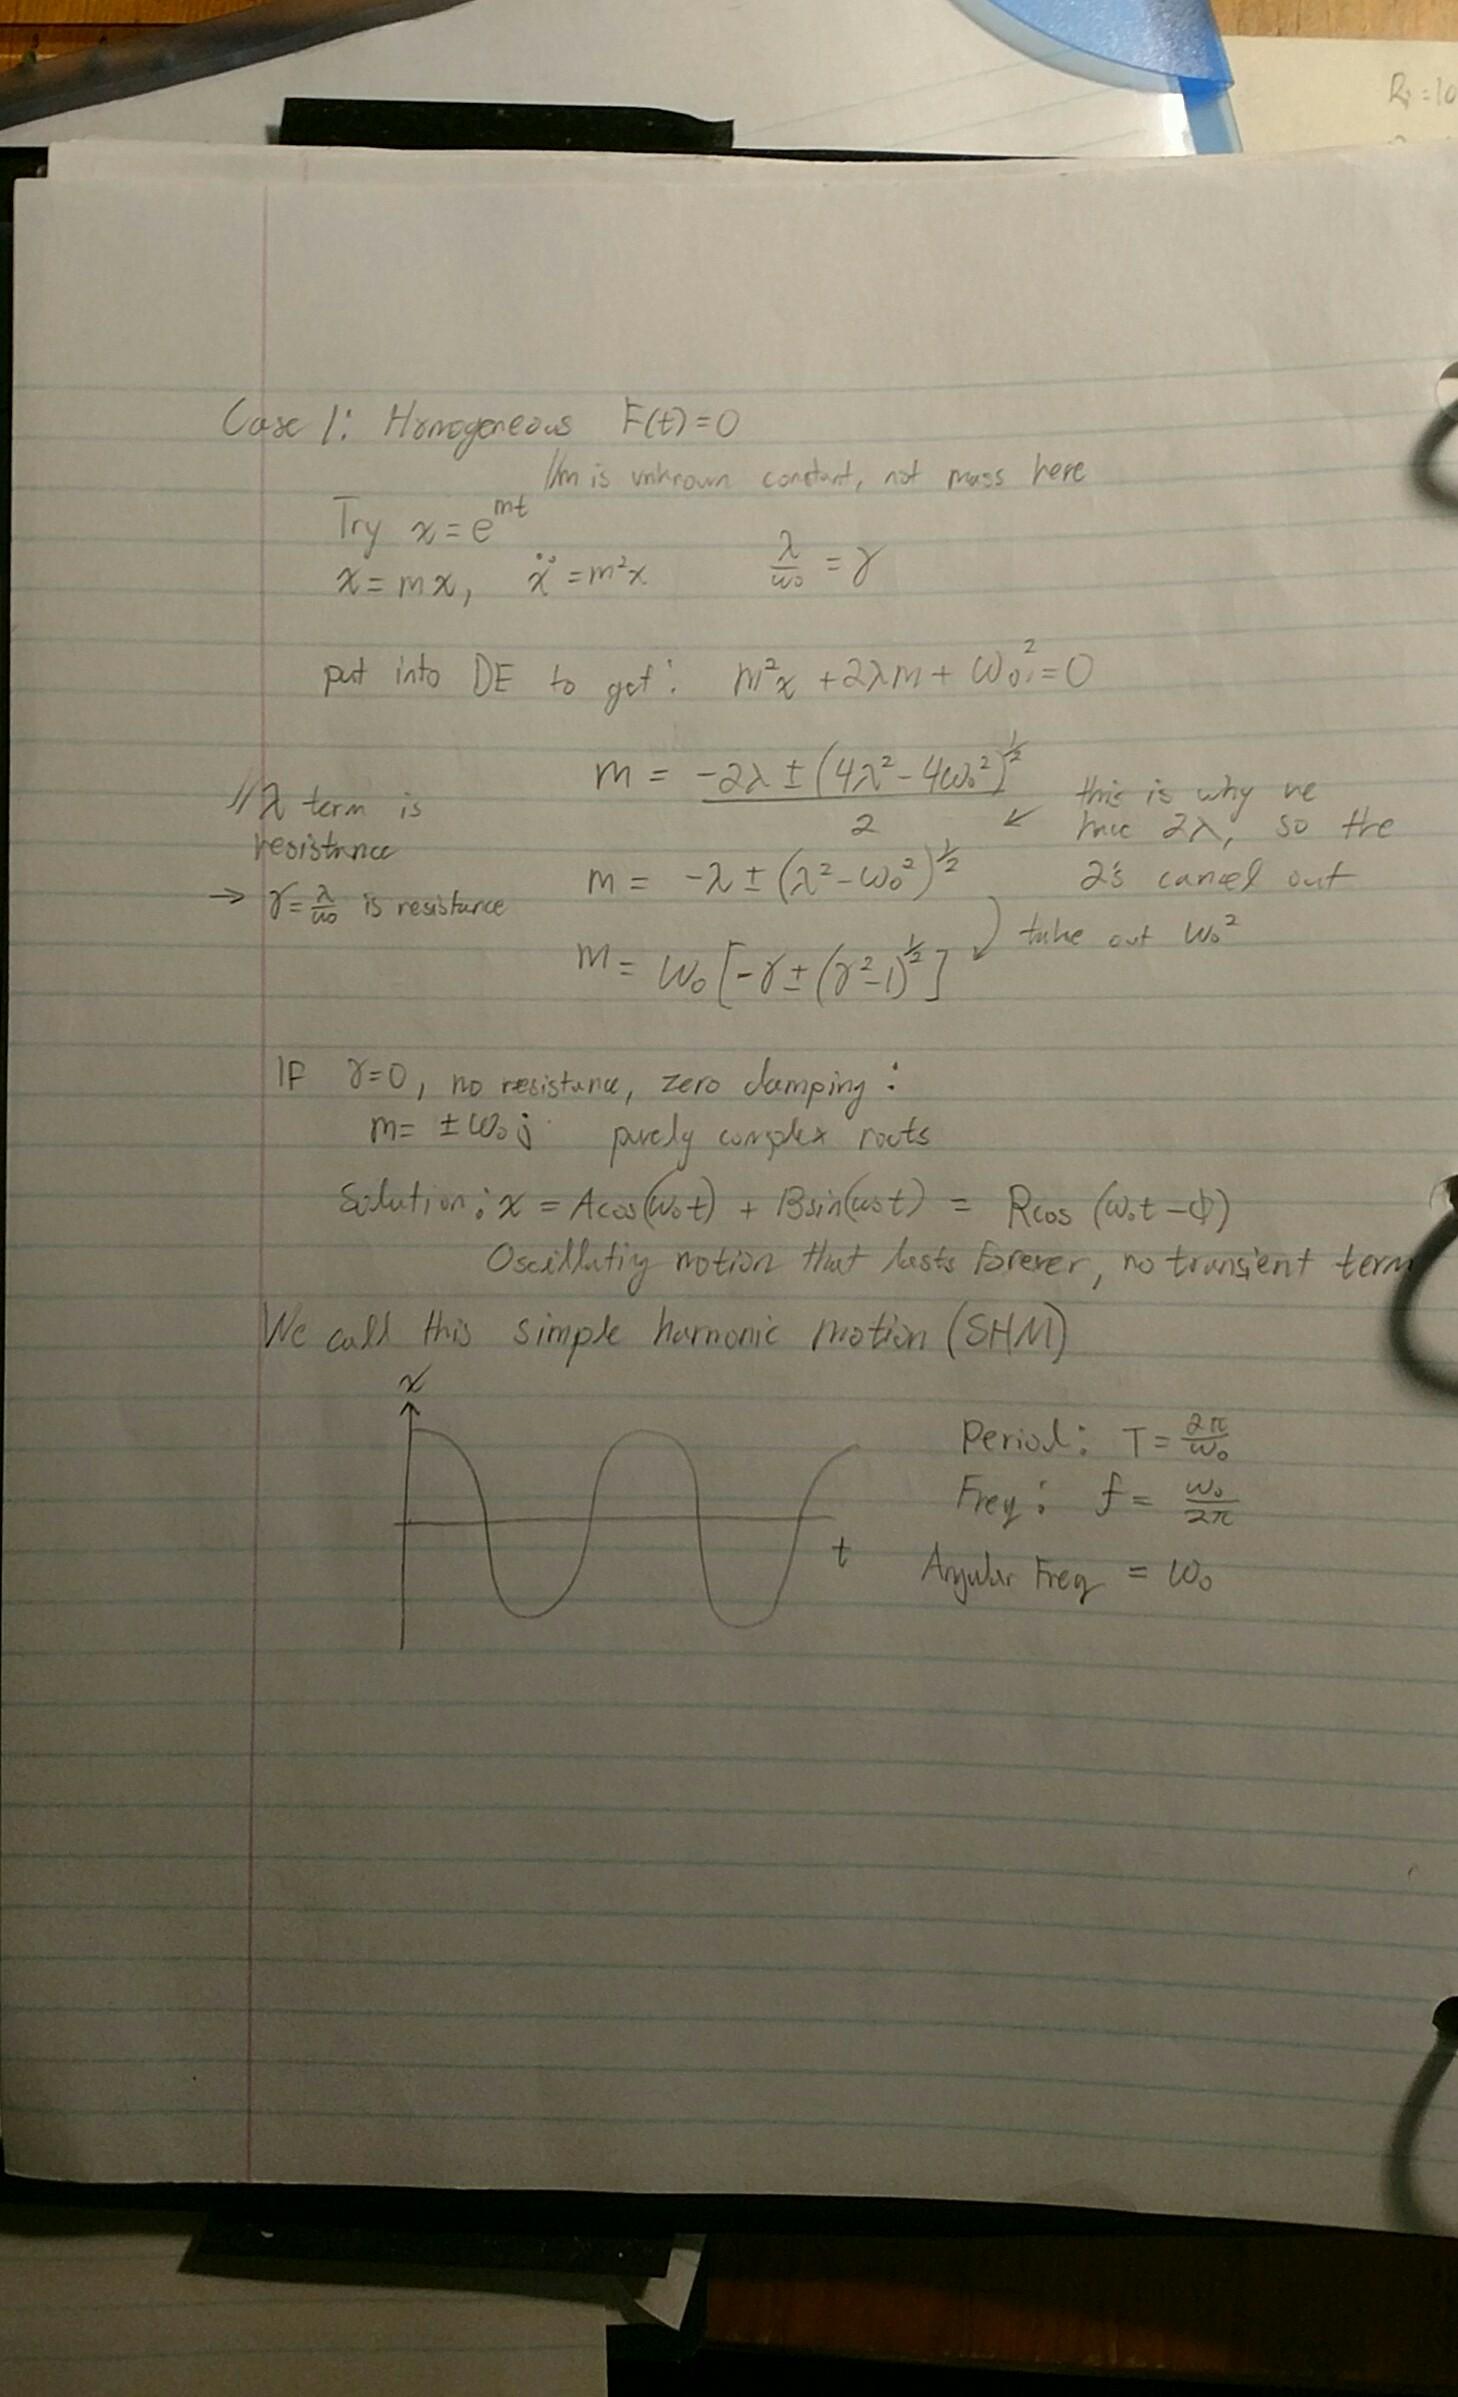 R₁=10
Case 1: Homogeneous F(t)=0
//m is unknown constant, not mass here
Try x=e^{mt}
x=mx, ẍ=m²x λ/ω₀=γ
put into DE to get: m²x+2λm+ω₀²=0
m = (-2λ±(4λ²-4ω₀²)^{1/2})/2
this is why we
have 2λ, so the
2's cancel out
//λ term is
resistance
→ γ=λ/ω₀ is resistance
m = -λ±(λ²-ω₀²)^{1/2}
take out ω₀²
m = ω₀[-γ±(γ²-1)^{1/2}]
IF γ=0, no resistance, zero damping:
m= ±ω₀j purely complex roots
Solution: x = Acos(ω₀t) + Bsin(ω₀t) = Rcos (ω₀t-φ)
Oscillatiy motion that lasts forever, no transient term
We call this simple harmonic motion (SHM)
x
t
Period: T=2π/ω₀
Freq: f= ω₀/2π
Angular Freq = ω₀